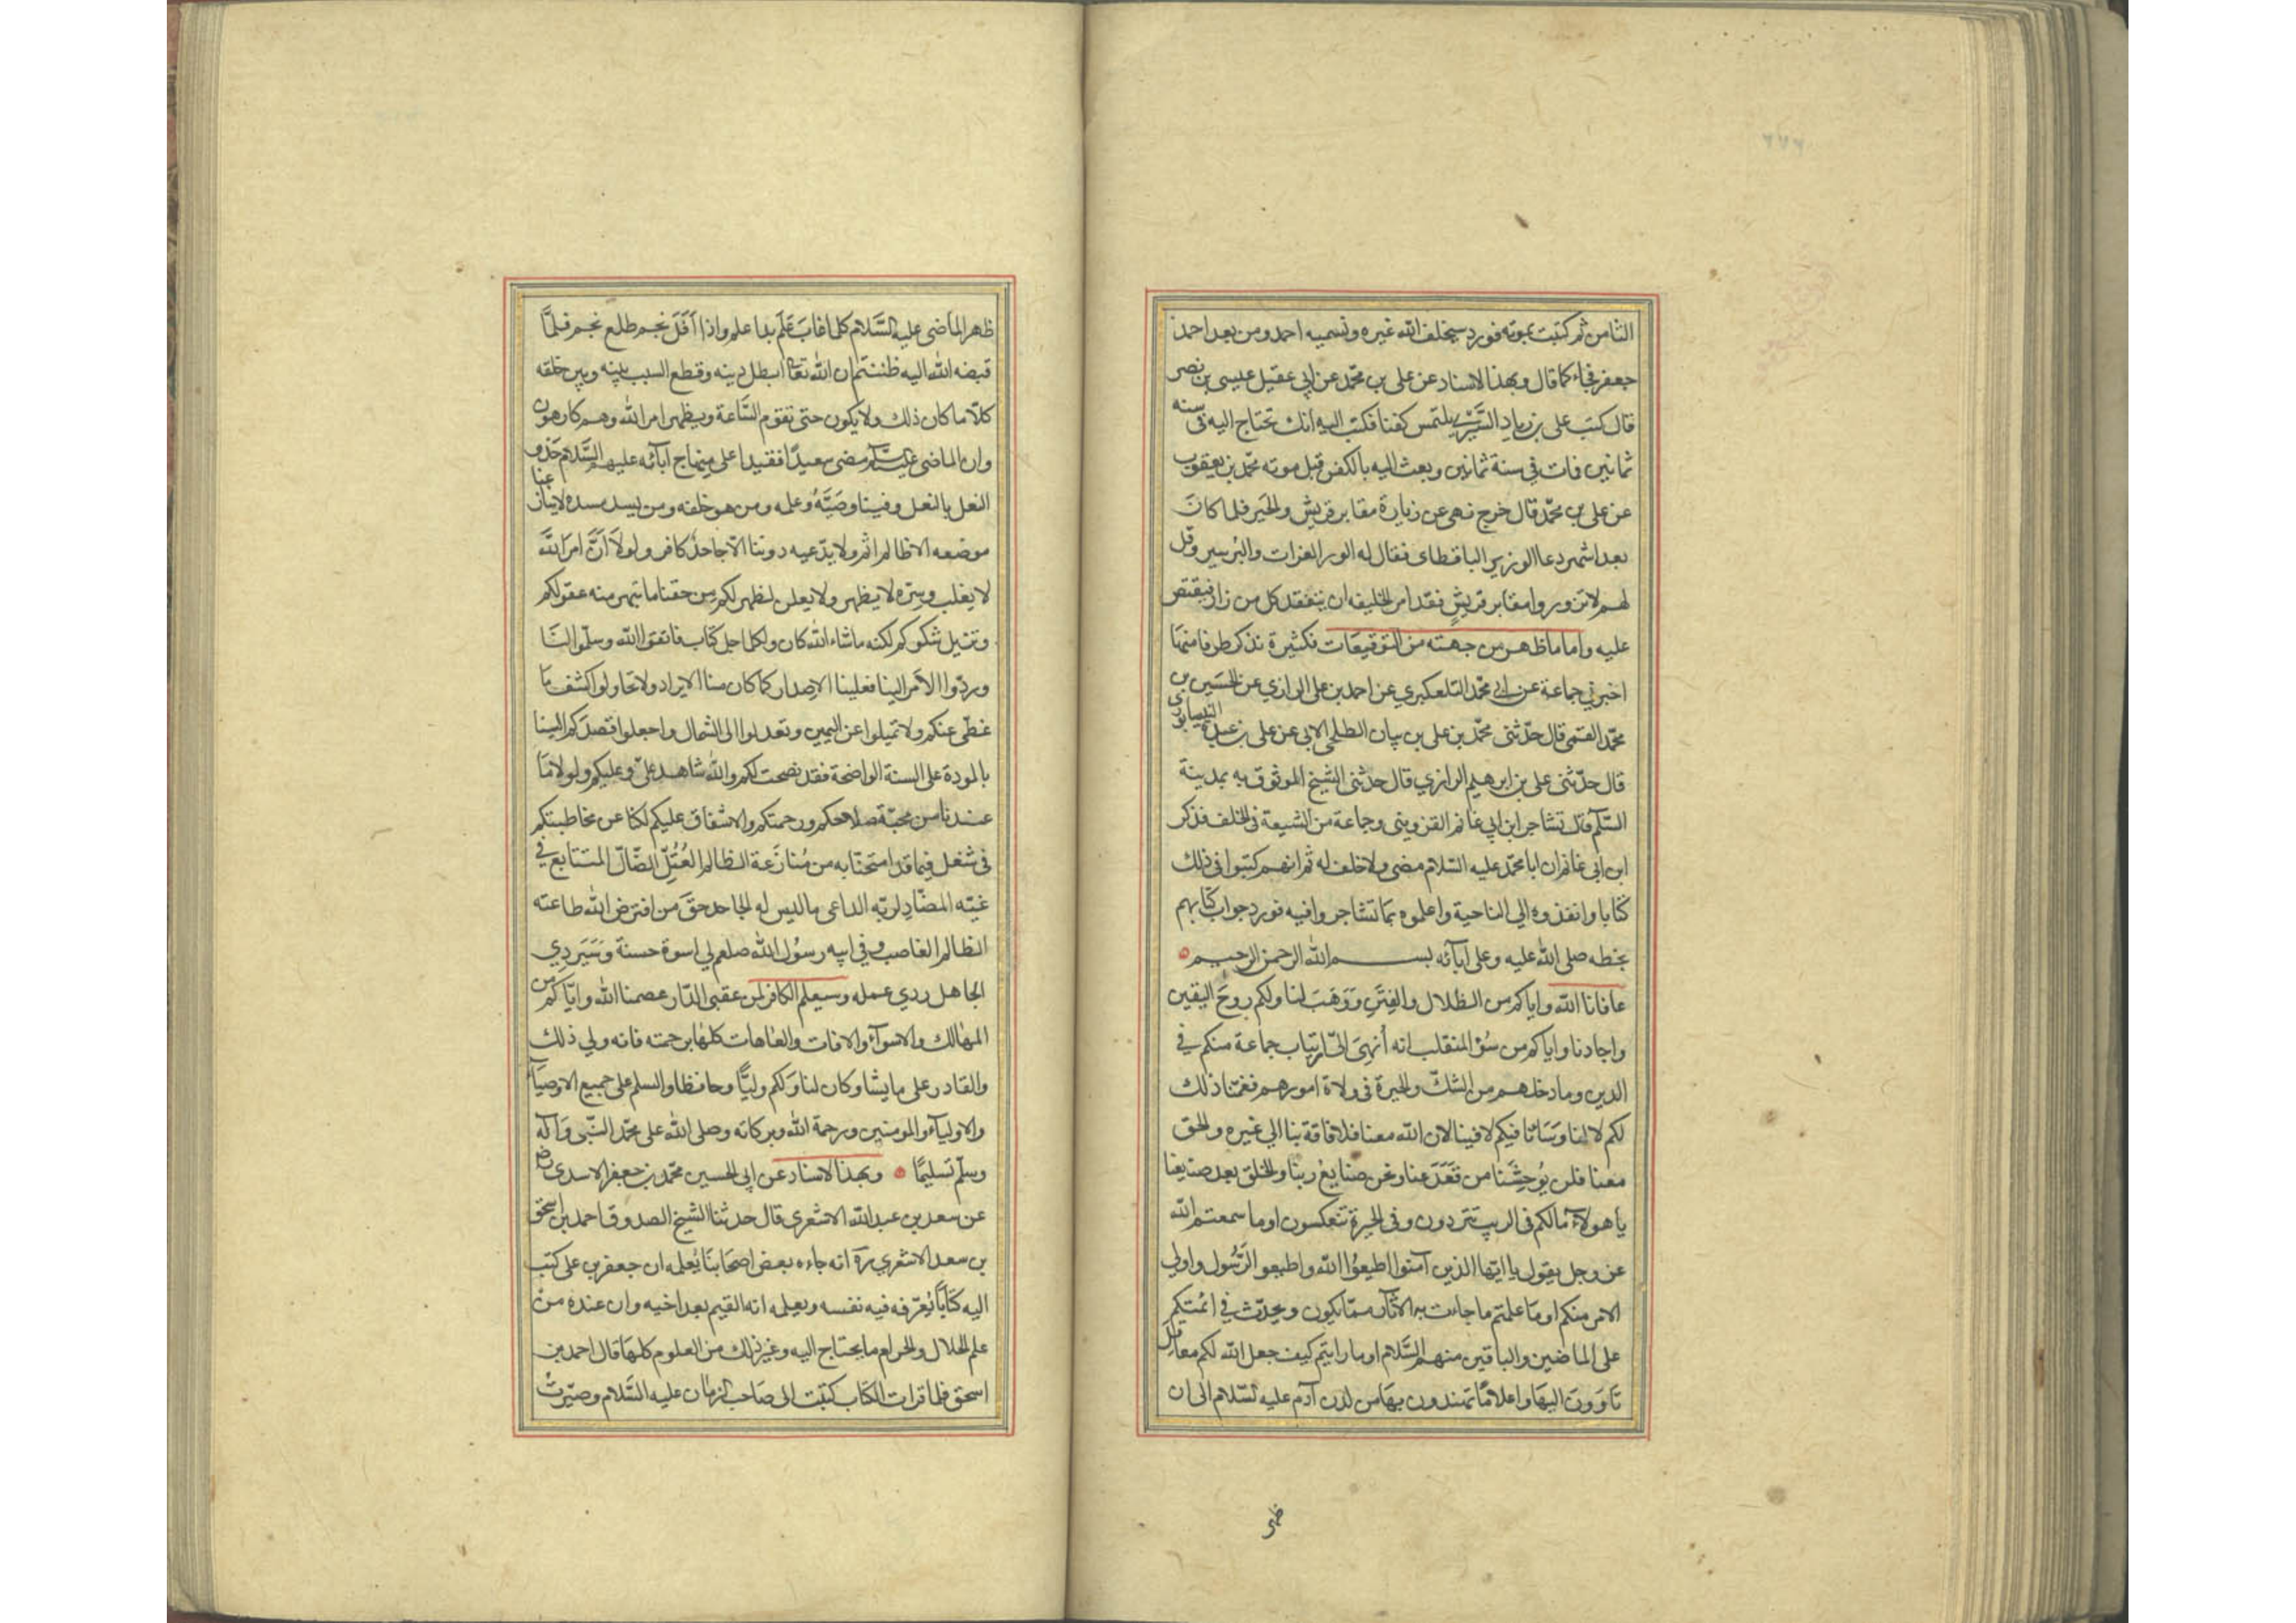 ٢٧٦
الثامن ثم كتبت بموته فورد سيخلف الله غيره وتسميه احمد ومن بعد احمد
جعفر فجاء كما قال وبهذا الاسناد عن علي بن محمد عن ابي عقيل عيسى بن نصر
قال كتب علي بن زياد يلتمس كفنا فكتب اليه انك تحتاج اليه في سنه
ثمانين فات في سنة ثمانين وبعث اليه بالكفن قبل موته محمد بن يعقوب
عن علي بن محمد قال خرج نهي عن زيارة مقابر قريش والحير فلما كان
بعد اشهر دعا الوزير الباقطاى فقال له الق بني الفرات والبرسيين وقل
لهم لا تزوروا مقابر قريش فقد امر الخليفه ان يتفقد كل من زار فيقبض
عليه واما ما ظهر من جهته من التوقيعات فكثيرة نذكر طرفا منها
اخبرني جماعة عن ابي محمد التلعكبري عن احمد بن علي الرازي عن الحسين بن
محمد القمي قال حدثني محمد بن علي بن بيان الطلحي الابي عن علي بن عبدة النيسابوري
قال حدثني علي بن ابرهيم الرازي قال حدثني الشيخ الموثوق به بمدينة
السلم قال تشاجر ابن ابي غانم القزويني وجماعة من الشيعة في الخلف فذكر
ابن ابي غانم ان ابا محمد عليه السلام مضى ولا خلف له ثم انهم كتبوا في ذلك
كتابا وانفذوه الي الناحية واعلموه بما تشاجروا فيه فورد جواب كتابهم
بخطه صلى الله عليه وعلى آبائه بسم الله الرحمن الرحيم
عافانا الله واياكم من الظلال والفتن ووهب لنا ولكم روح اليقين
واجارنا واياكم من سؤ المنقلب انه أنهي اليّ ارتياب جماعة منكم في
الدين وما دخلهم من الشك والحيرة في ولاة امورهم فغمنا ذلك
لكم لا لنا وساءنا فيكم لا فينا لان الله معنا فلا فاقة بنا الي غيره والحق
معنا فلن يوحشنا من قعد عنا ونحن صنايع ربنا والخلق بعد صنايعنا
يا هولاء مالكم في الريب تترددون وفي الحيرة تنعكسون اوما سمعتم الله
عز وجل يقول يا ايها الذين آمنوا اطيعوا الله واطيعوا الرسول واولي
الامر منكم اوما علمتم ما جاءت به الاثار مما يكون ويحدث في ائمتكم
على الماضين والباقين منهم السلام اوما رايتم كيف جعل الله لكم معاقل
تاوون اليها واعلاما تهتدون بها من لدن آدم عليه السلام الى ان
ظهر
ظهر الماضي عليه السلام كلما غاب علم بدا علم واذا أفل نجم طلع نجم فلما
قبضه الله اليه ظننتم ان الله تعا ابطل دينه وقطع السبب بينه وبين خلقه
كلا ما كان ذلك ولا يكون حتى تقوم الساعة ويظهر امر الله وهم كارهون
وان الماضي عليه السلم مضى سعيدا فقيدا على منهاج آبائه عليهم السلام حذو
النعل بالنعل وفينا وصيته وعلمه ومن هو خلفه ومن يسد مسده لا ينازعنا
موضعه الا ظالم اثم ولا يدعيه دوننا الا جاحد كافر ولولا أن امر الله
لا يغلب وسره لا يظهر ولا يعلن لظهر لكم من حقنا ما تبهر منه عقولكم
وتزيل شكوكم لكنه ما شاء الله كان ولكل اجل كتاب فاتقوا الله وسلموا لنا
وردوا الأمر الينا فعلينا الاصدار كما كان منا الايراد ولا تحاولوا كشف ما
غطي عنكم ولا تميلوا عن اليمين وتعدلوا الى الشمال واجعلوا قصدكم الينا
بالمودة على السنة الواضحة فقد نصحت لكم والله شاهد علي وعليكم ولولا ما
عندنا من محبة صلاحكم ورحمتكم والاشفاق عليكم لكنا عن مخاطبتكم
في شغل فيما قد امتحنا به من منازعة الظالم العتل الضال المتتابع في
غيه المضاد لربه الداعي ما ليس له الجاحد حق من افترض الله طاعته
الظالم الغاصب وفي ابنه رسول الله صلعم لي اسوة حسنة وسيردي
الجاهل ردي عمله وسيعلم الكافر لمن عقبى الدار عصمنا الله واياكم من
المهالك والاسواء والافات والعاهات كلها برحمته فانه ولي ذلك
والقادر على ما يشا وكان لنا ولكم وليا وحافظا والسلم على جميع الاوصياء
والاولياء والمومنين ورحمة الله وبركاته وصلى الله على محمد النبي وآله
وسلم تسليما وبهذا الاسناد عن ابي الحسين محمد بن جعفر الاسدي رض
عن سعد بن عبد الله الاشعري قال حدثنا الشيخ الصدوق احمد بن اسحق
بن سعد الاشعري ره انه جاءه بعض اصحابنا يعلمه ان جعفر بن علي كتب
اليه كتابا يعرفه فيه نفسه ويعلمه انه القيم بعد اخيه وان عنده من
علم الحلال والحرام ما يحتاج اليه وغير ذلك من العلوم كلها قال احمد بن
اسحق فلما قرات الكتاب كتبت الى صاحب الزمان عليه السلام وصيرت